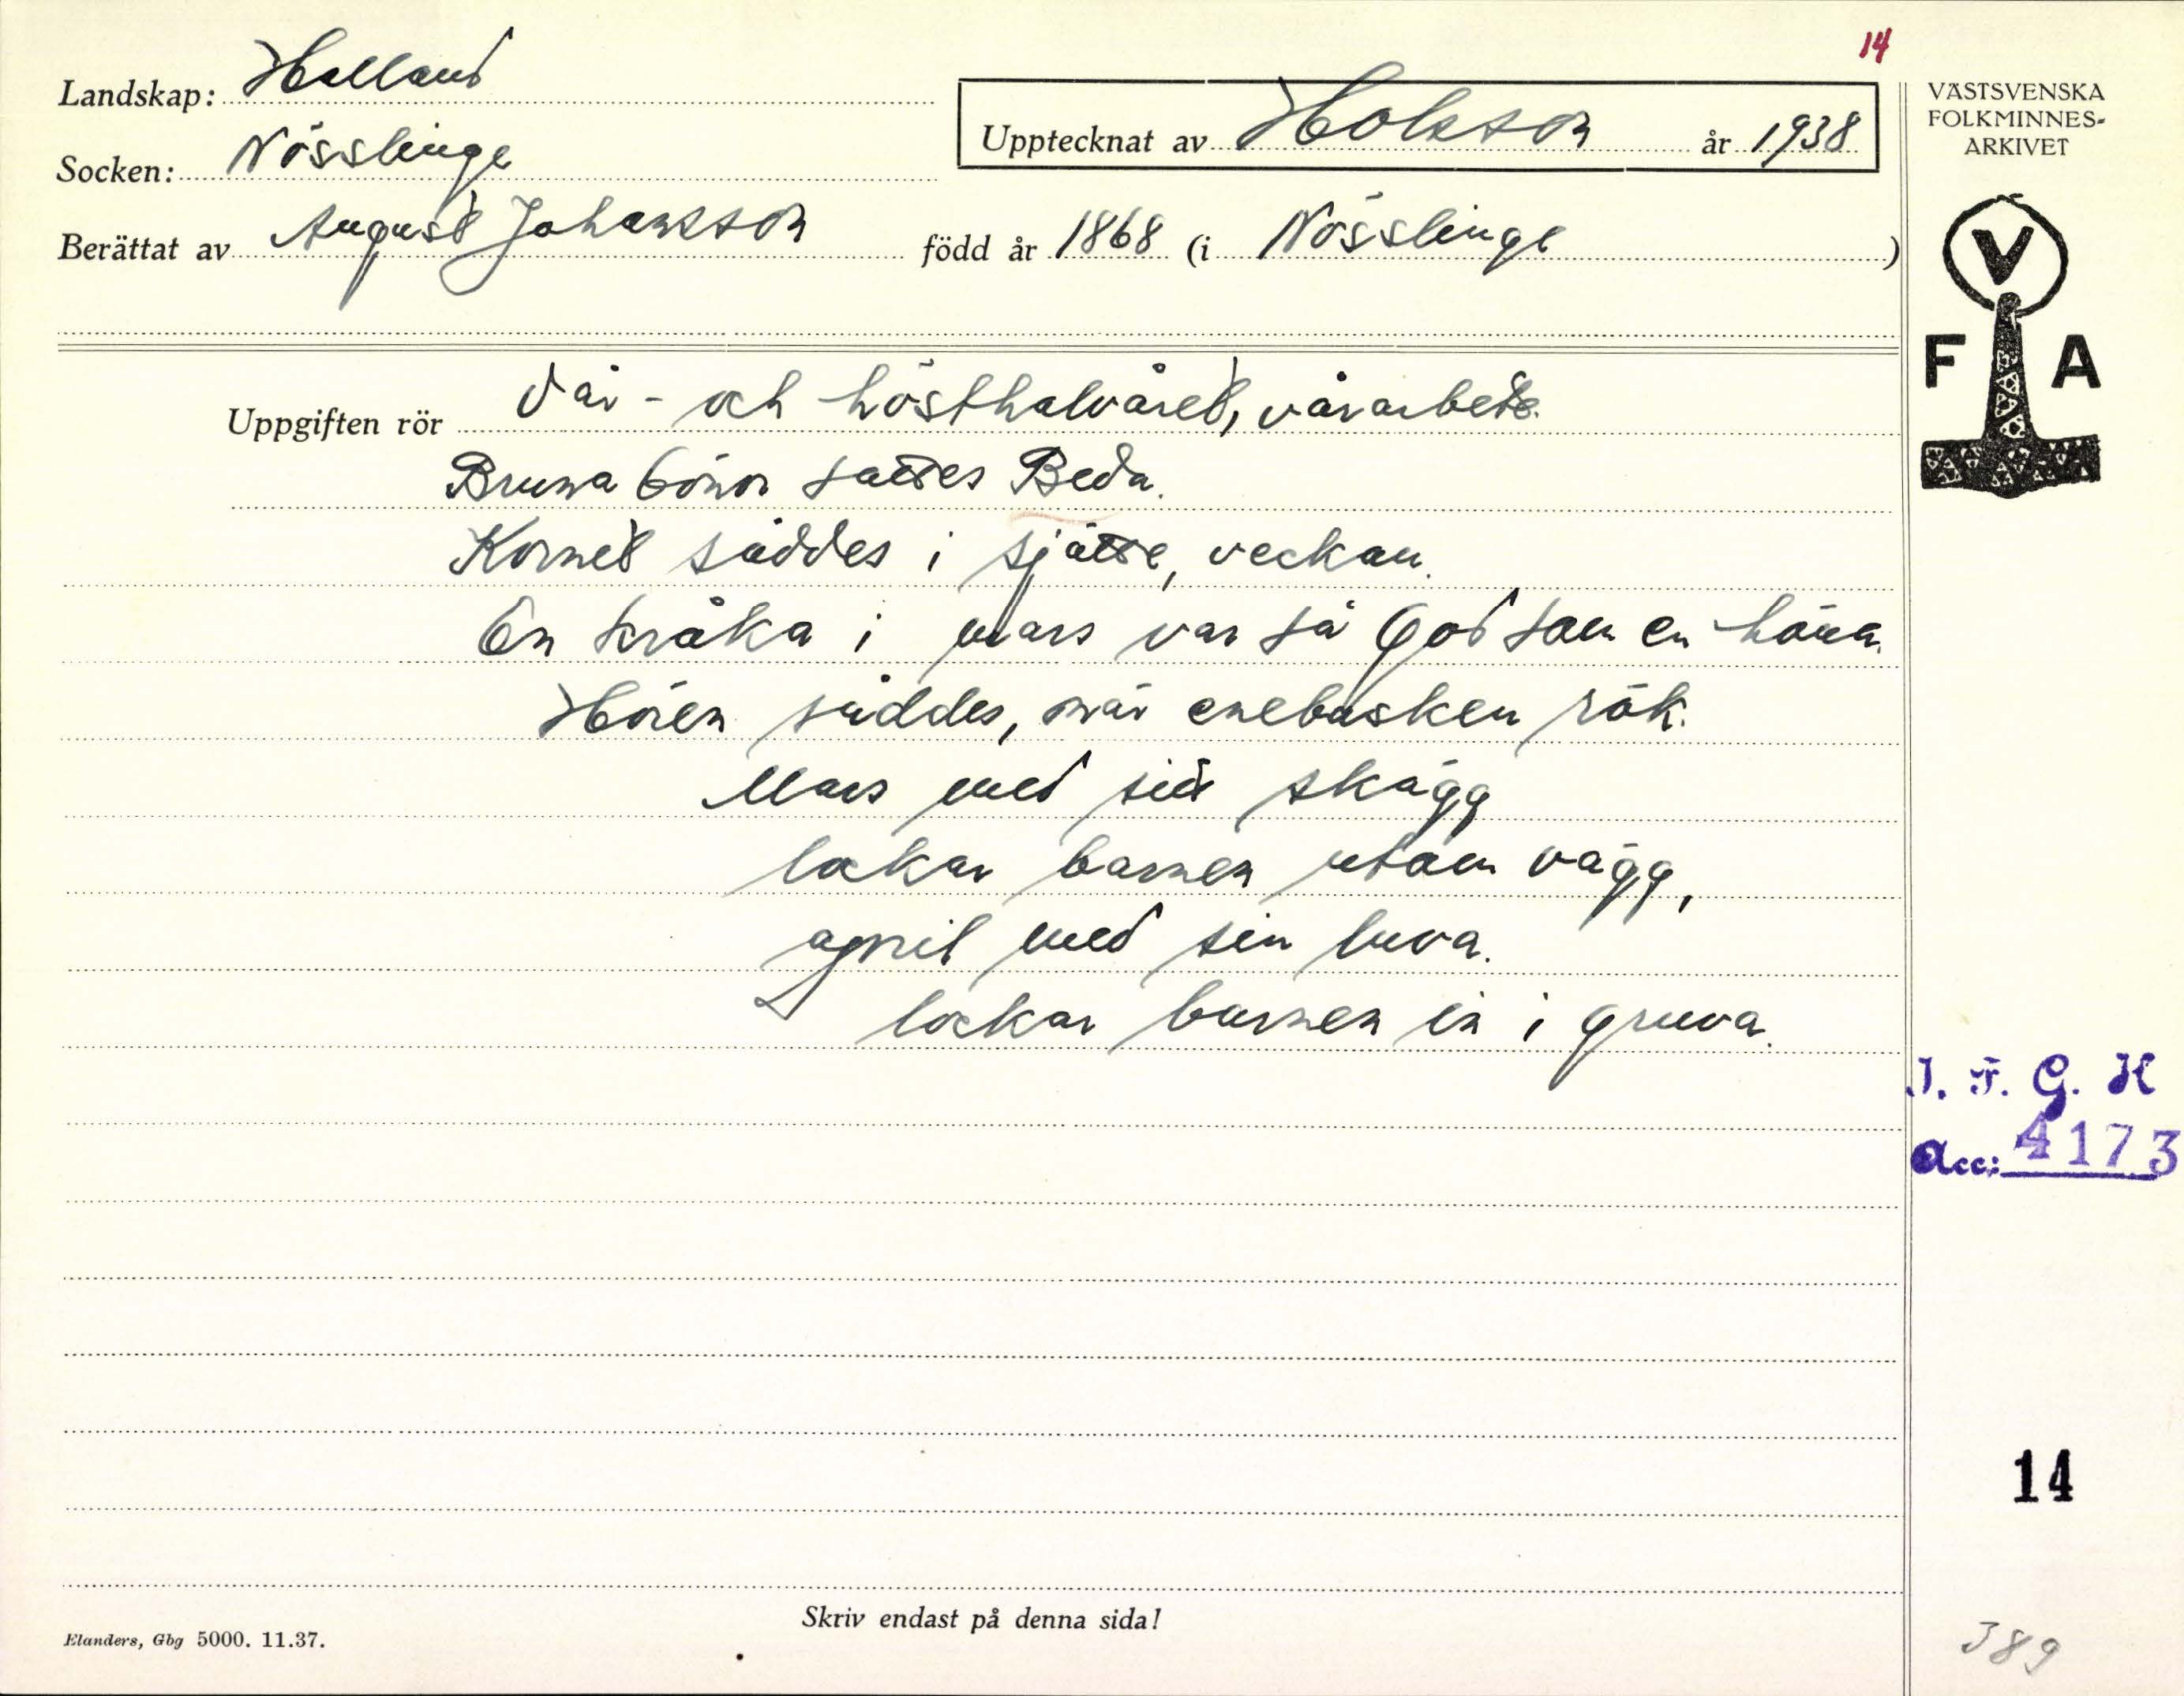 14
Landskap: Halland
Upptecknat av Holsson år 1938
Socken: Nösslinge
Berättat av August Johansson född år 1868 (i Nösslinge)
VÄSTSVENSKA
FOLKMINNES-
ARKIVET
V
F A
Uppgiften rör Vår- och hösthalvåret, vårarbete.
Bruna bönor sattes Beda.
Kornet såddes i sjätte, veckan.
En kråka i mars var så god som en höna.
Hören såddes, när enebusken rök.
Mars med sitt skägg
lockar barnen utom vägg,
april med sin luva.
lockar barnen in i gruva.
I. F. G. H
Acc: 4173
14
Skriv endast på denna sida!
Elanders, Gbg 5000. 11.37.
389